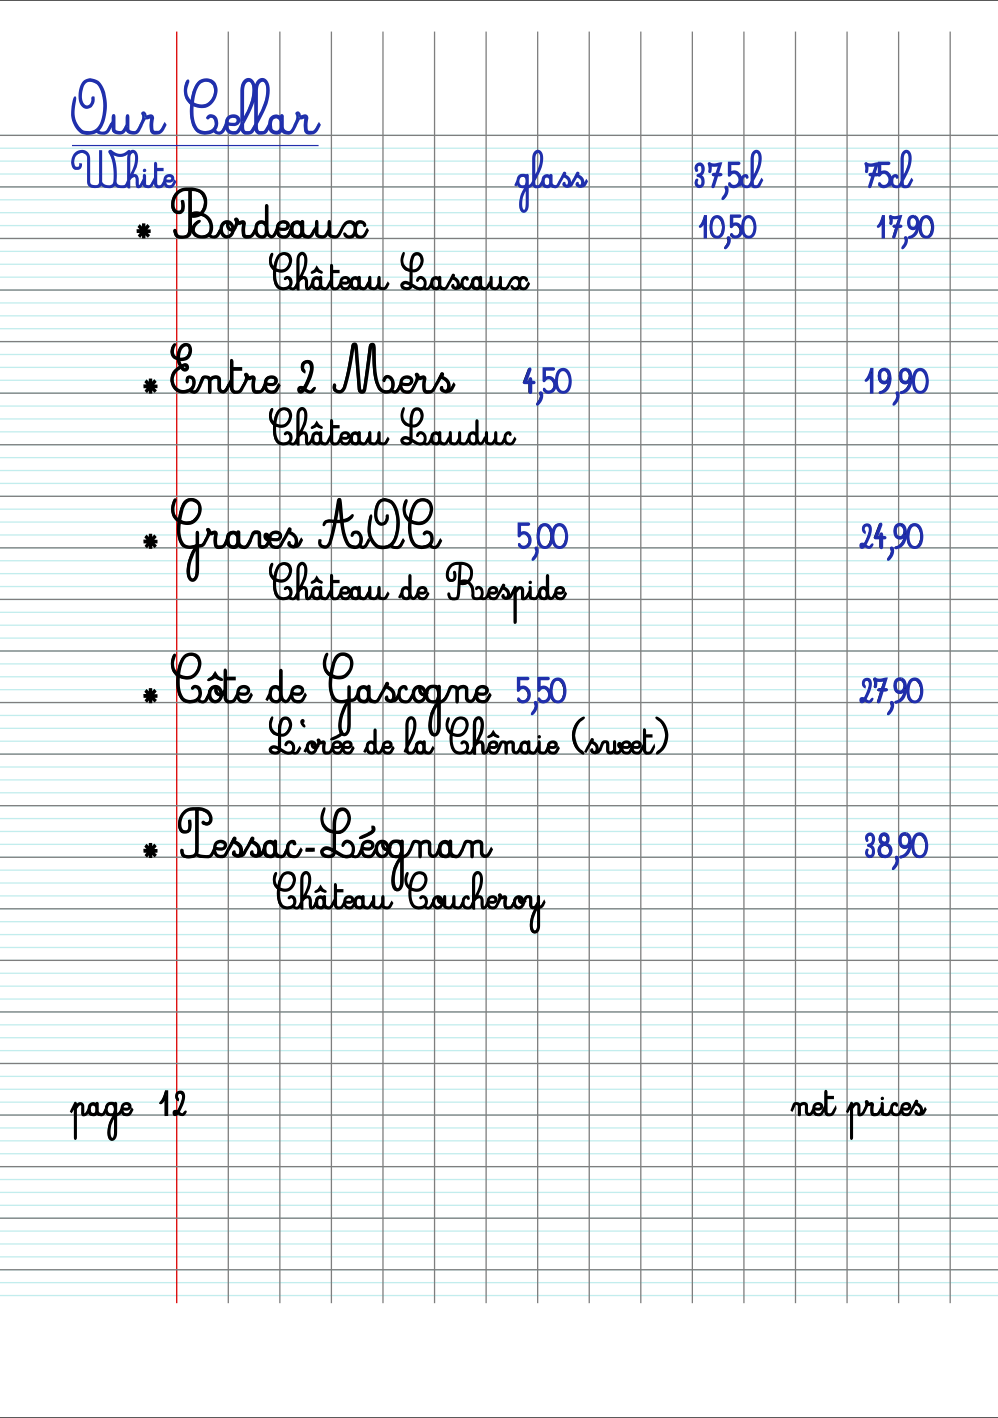 Our Cellar
White glass 37,5cl 75cl
* Bordeaux 10,50 17,90
Château Lascaux
* Entre 2 Mers 4,50 19,90
Château Lauduc
* Graves AOC 5,00 24,90
Château de Respide
* Côte de Gascogne 5,50 27,90
L'orée de la Chênaie (sweet)
* Pessac-Léognan 38,90
Château Coucheroy
page 12 net prices